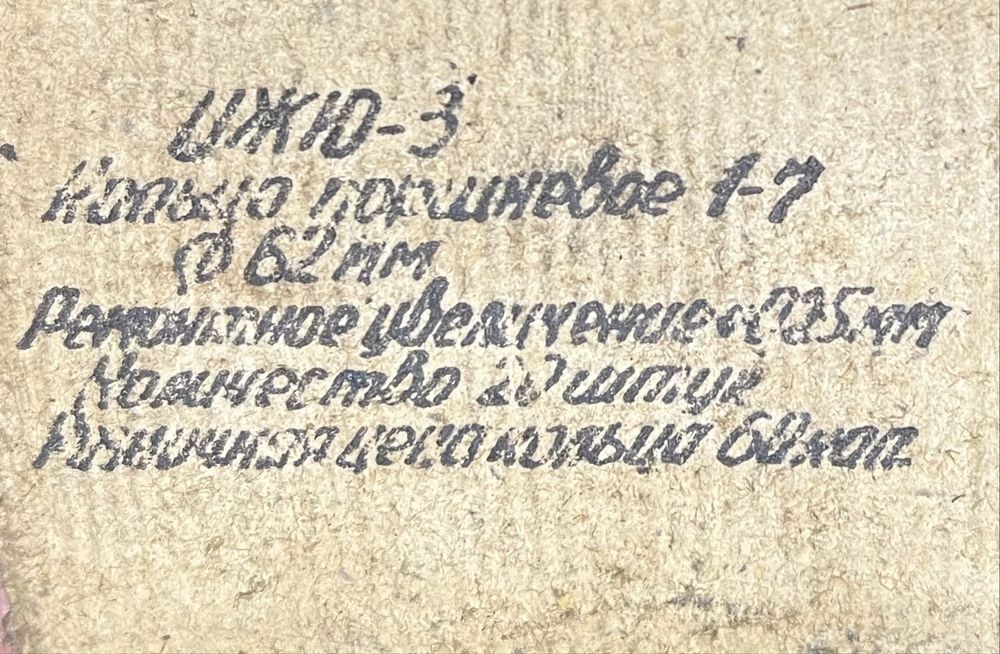 ИЖЮ-3
Кольцо поршневое 1-7
⌀ 62 мм
Ремонтное увеличение 0.25мм
Количество 20 штук
Розничная цена кольца 60 коп.